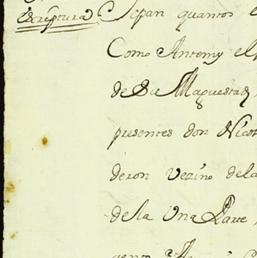 Escriptura Sepan quantos e
Como Antomy el
de Su Magestad,
presentes don Nicol
deron Vezino dela
de la Una Parte,